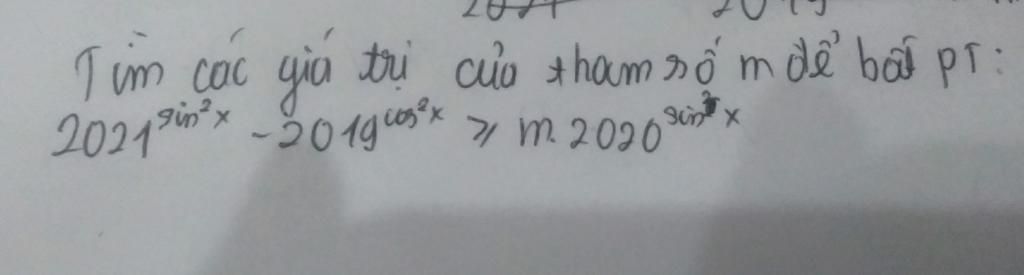 Tìm các giá trị của tham số m để bất PT:
2021^sin²x - 2019^cos²x ≥ m. 2020^sin²x